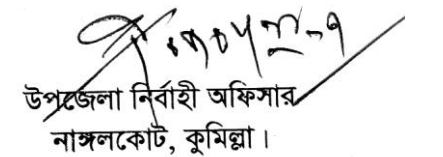 উপজেলা নির্বাহী অফিসার
নাঙ্গলকোট, কুমিল্লা।